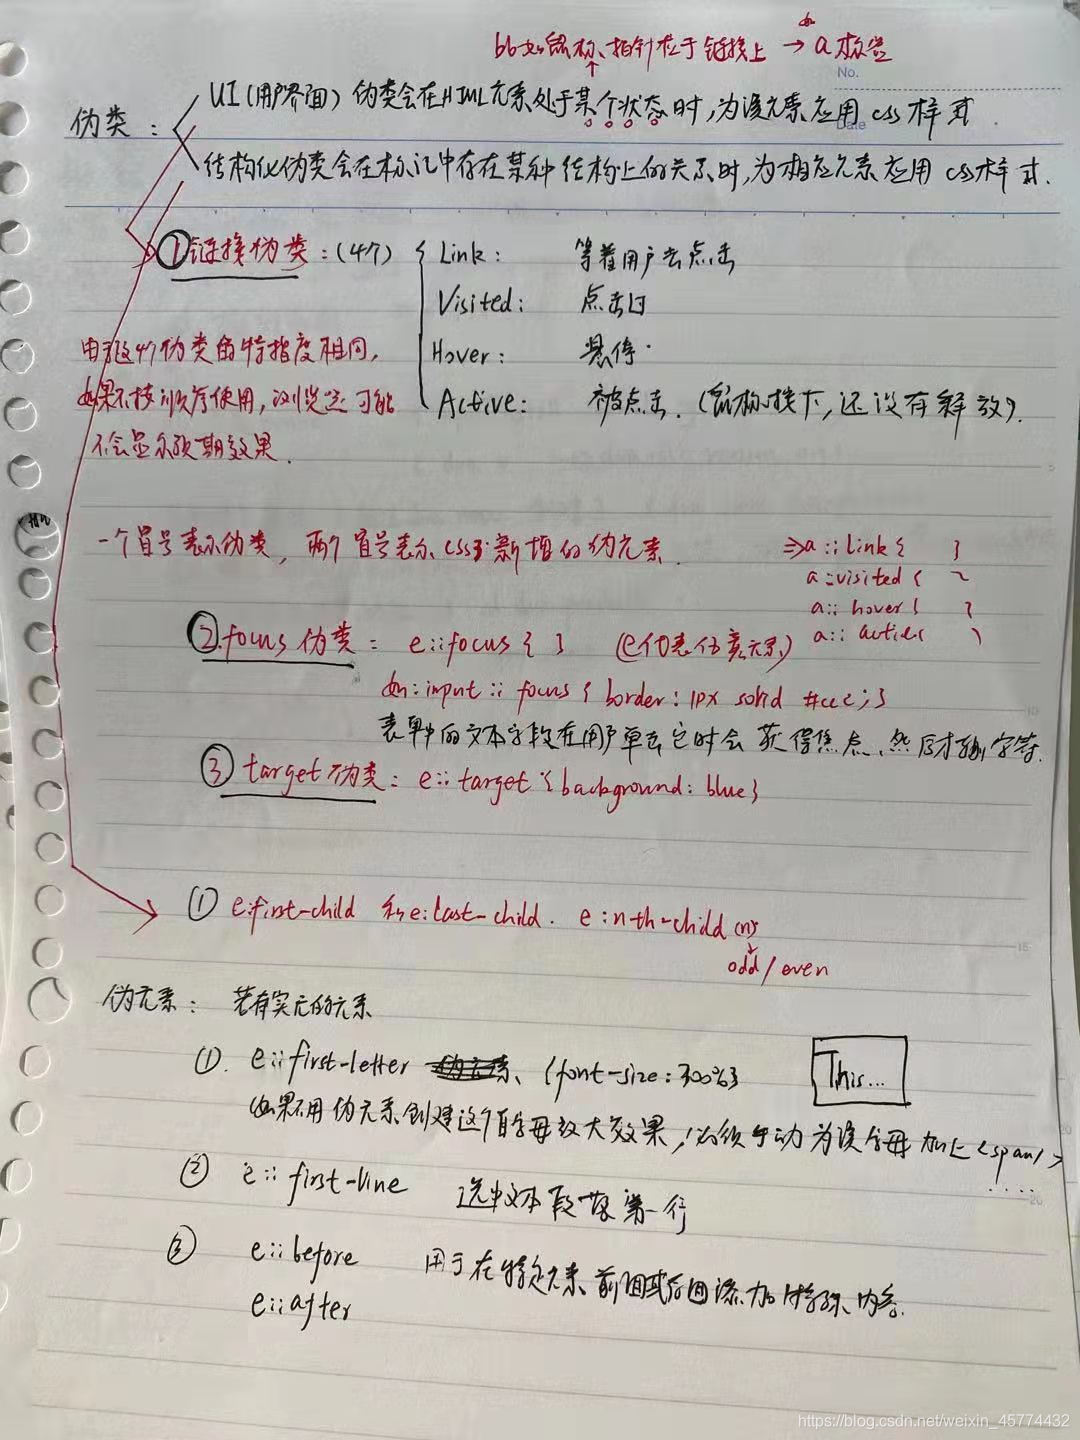 比如鼠标、指针位于链接上 → a标签
如
No.
Date
伪类： UI(用户界面) 伪类会在HTML元素处于某个状态时，为该元素应用 css 样式
结构化伪类会在标记中存在某种结构上的关系时，为相应元素应用 css样式.
①链接伪类：(4个) { Link： 等着用户去点击
Visited： 点击过
Hover： 悬停.
Active： 被点击. (鼠标按下，还没有释放).
由于这4个伪类的特指度相同，
如果不按顺序使用，浏览器可能
不会显示预期效果.
一个冒号表示伪类，两个冒号表示 css3新增的伪元素. ⇒a::link{ }
a::visited{ }
a::hover{ }
a::active{ }
②focus 伪类： e::focus{ } (e代表任意元素)
如：input::focus{border:1px solid #ccc;}
表单中的文本字段在用户单击它时会 获得焦点、然后才能输字符.
③target伪类：e::target{background:blue}
① e:first-child 和e:last-child. e:nth-child(n)
odd/even
15
伪元素： 若有实无的元素
①. e::first-letter {font-size:300%}
This...
如果不用伪元素创建这个首字母放大效果，必须手动为该字母加上<span>
....
20
② e::first-line 选中文本段落第一行
③ e::before 用于在特定元素前面或后面添加特殊内容.
e::after
https://blog.csdn.net/weixin_45774432